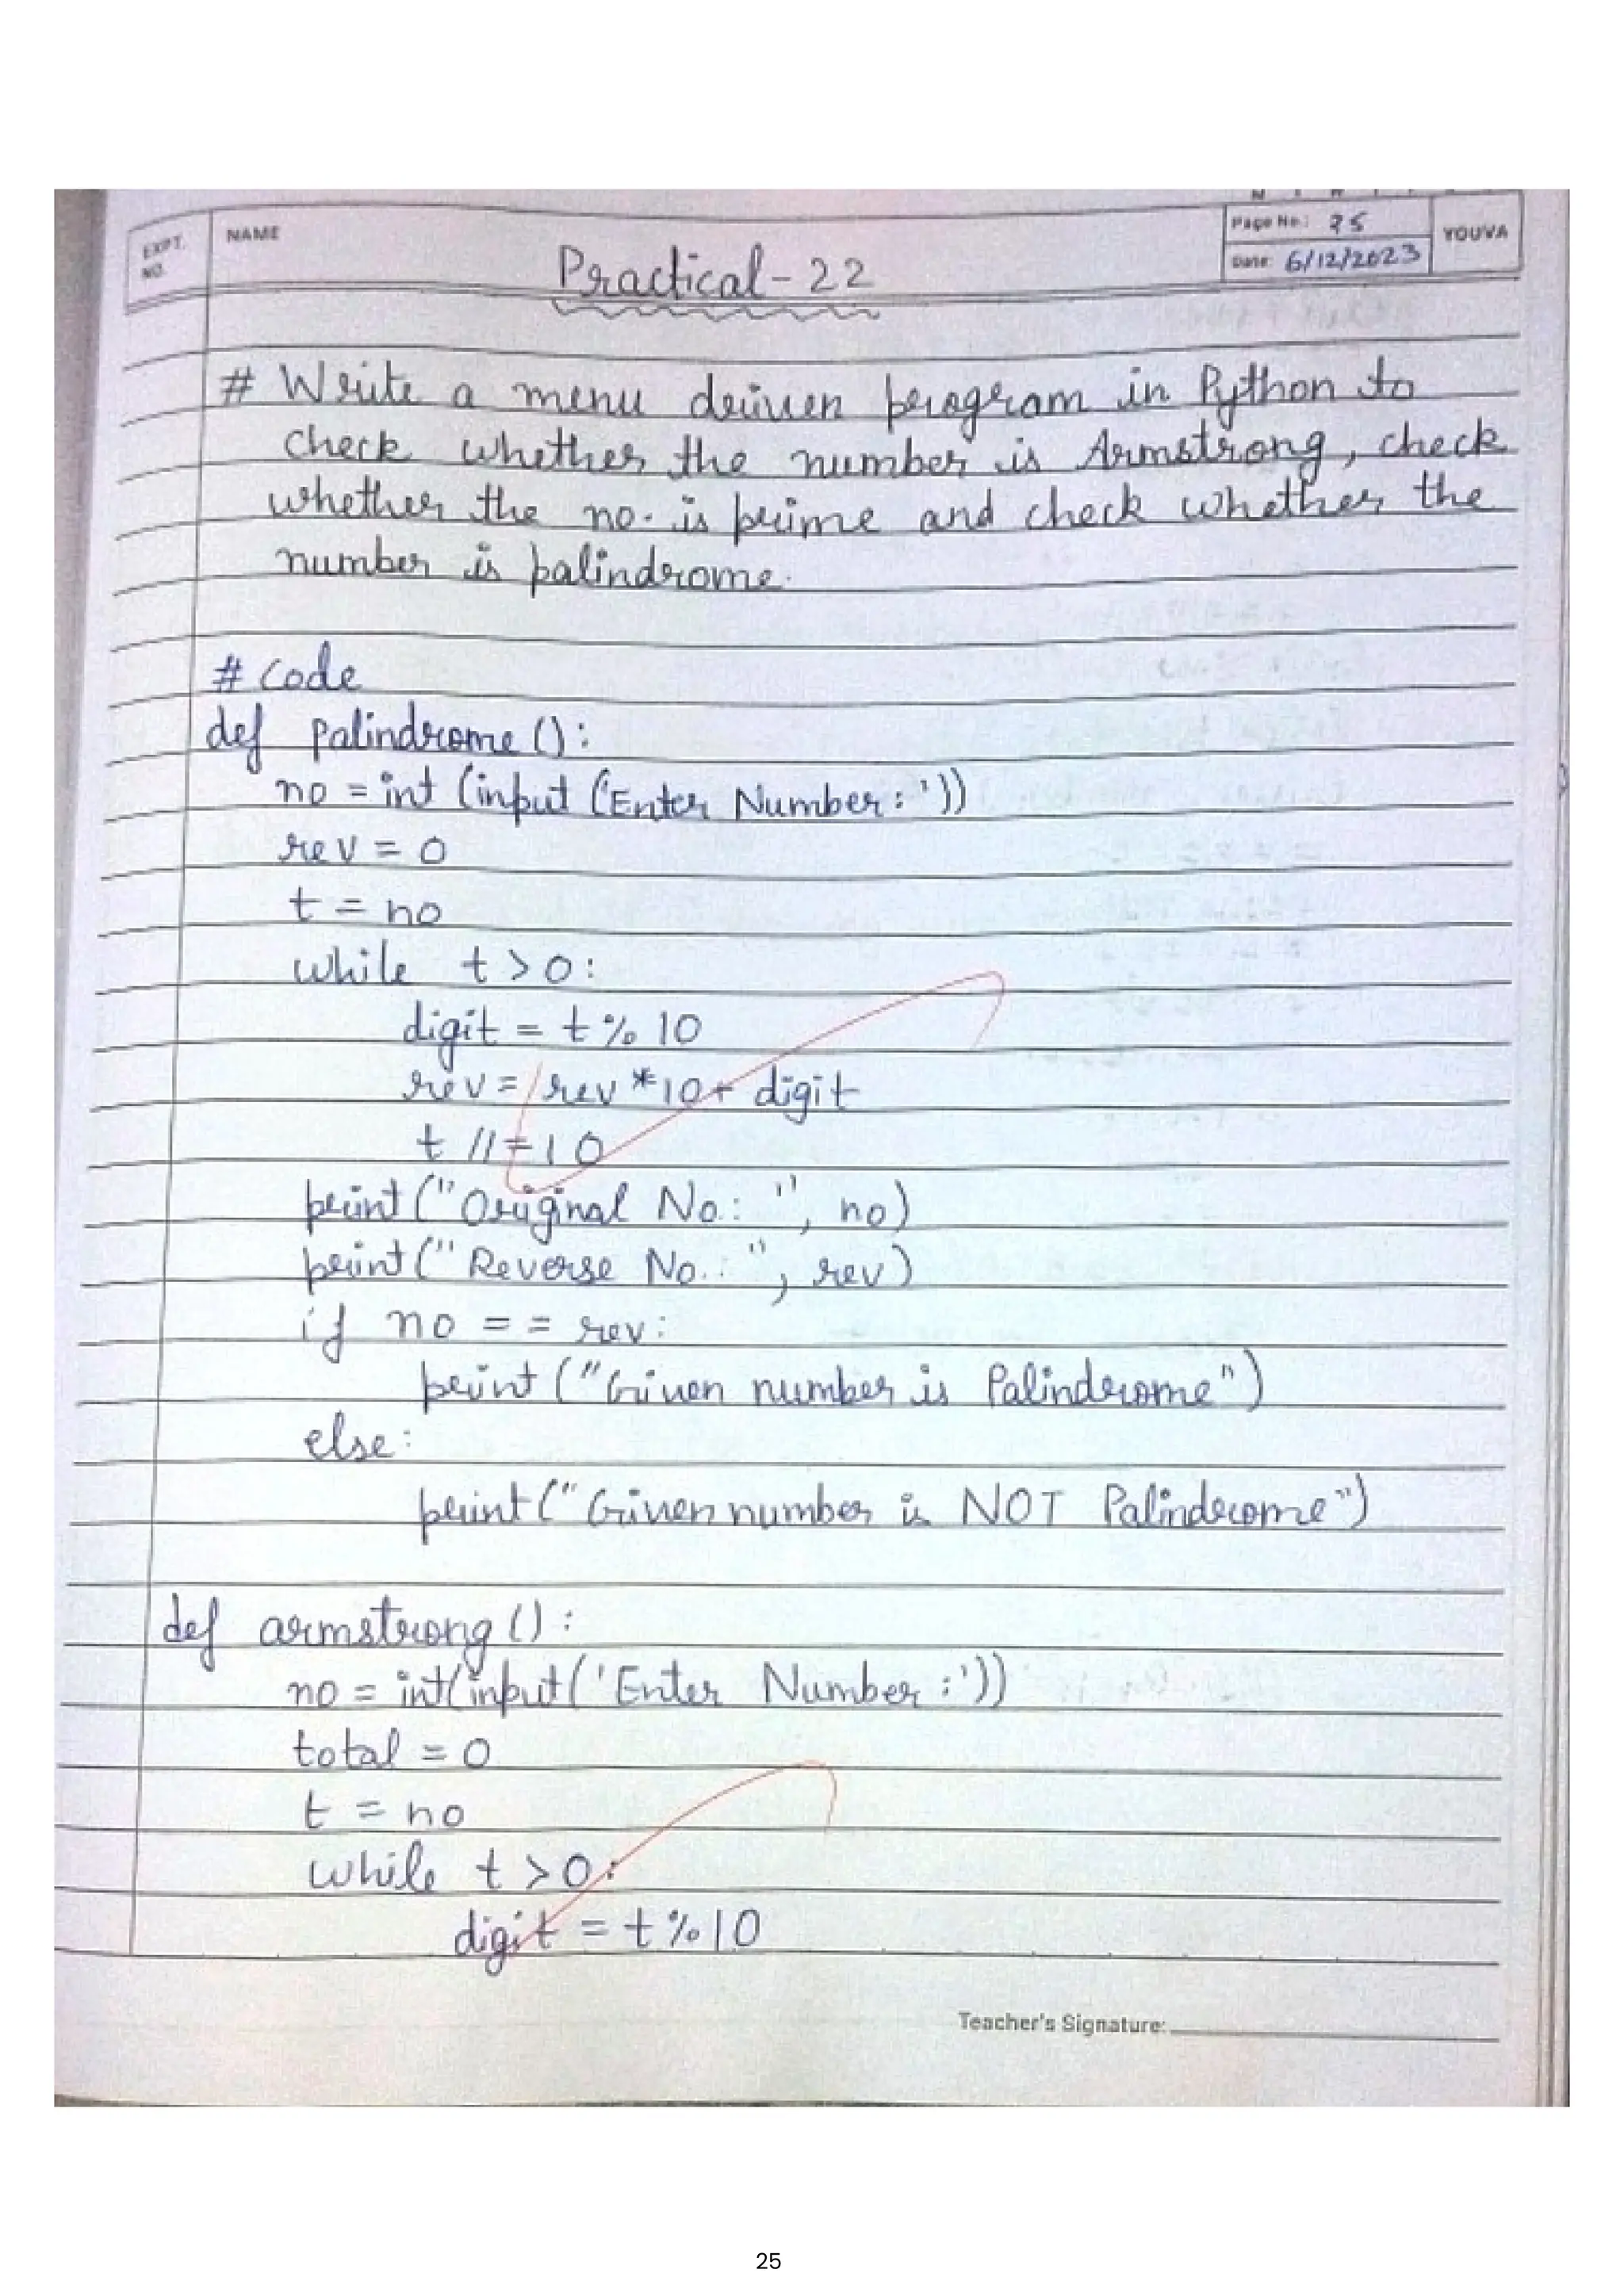 EXPT. NO.
NAME
Page No.: 25
Date: 6/12/2023
YOUVA
Practical-22
# Write a menu driven program in Python to
check whether the number is Armstrong, check
whether the no. is prime and check whether the
number is palindrome.
# Code
def Palindrome():
no = int (input ('Enter Number: '))
rev = 0
t = no
while t > 0:
digit = t % 10
rev = rev * 10 + digit
t //= 10
print ("Original No.: ", no)
print ("Reverse No.: ", rev)
if no == rev:
print ("Given number is Palindrome")
else:
print (" Given number is NOT Palindrome")
def armstrong():
no = int(input('Enter Number :'))
total = 0
t = no
while t > 0:
digit = t % 10
Teacher's Signature:
25